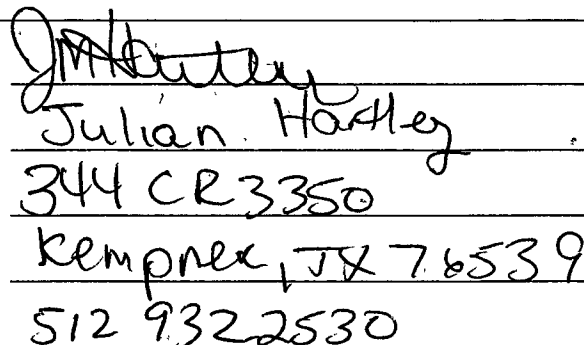 JMHartley
Julian Hartley
344 CR 3350
Kempner, TX 76539
512 932 2530